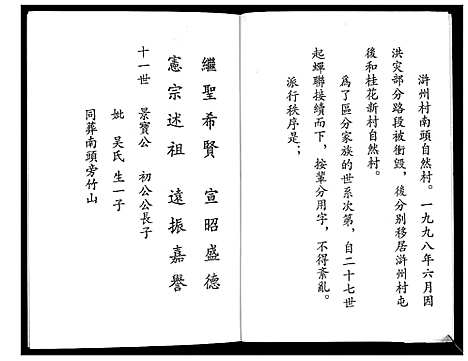 滸州村南頭自然村。一九九八年六月因
洪灾部分路段被衝毀，後分别移居滸州村屯
後和桂花新村自然村。
爲了區分家族的世系次第，自二十七世
起蟬聯接續而下，按輩分用字，不得紊亂。
派行秩序是；
繼聖希賢　宣昭盛德
憲宗述祖　遠振嘉譽
十一世　景寶公　初公公長子
妣　吴氏　生一子
同葬南頭旁竹山